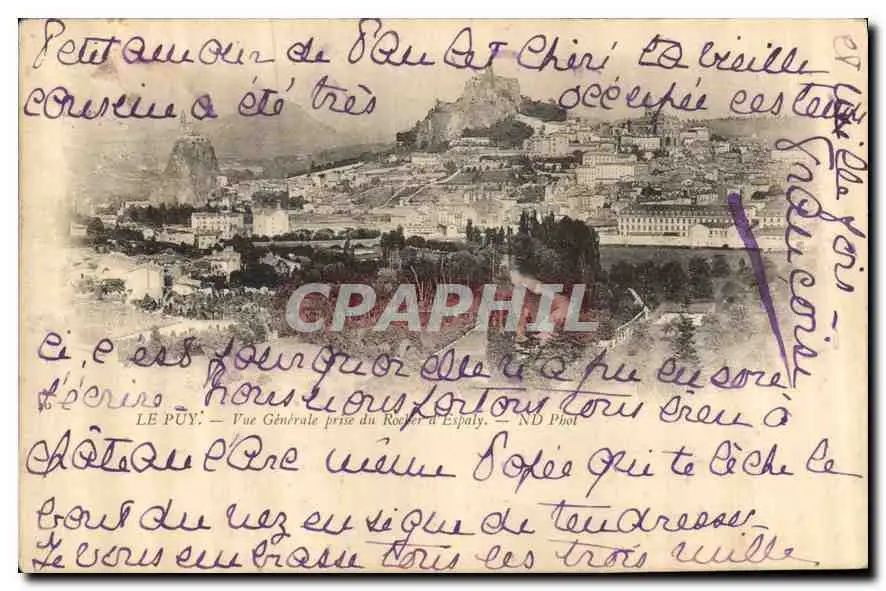 Petit amour de Paulet chéri ta vieille
cousine a été très occupée ces temps
ci, c'est pourquoi elle n'a pu encore
t'écrire. Nous nous portons tous bien à
LE PUY. — Vue Générale prise du Rocher d'Espaly. — ND Phot
château l'Arc même Popée qui te lèche le
bout du nez en signe de tendresse.
Je vous embrasse tous les trois mille
et mille fois
Françoise
CPAPHIL